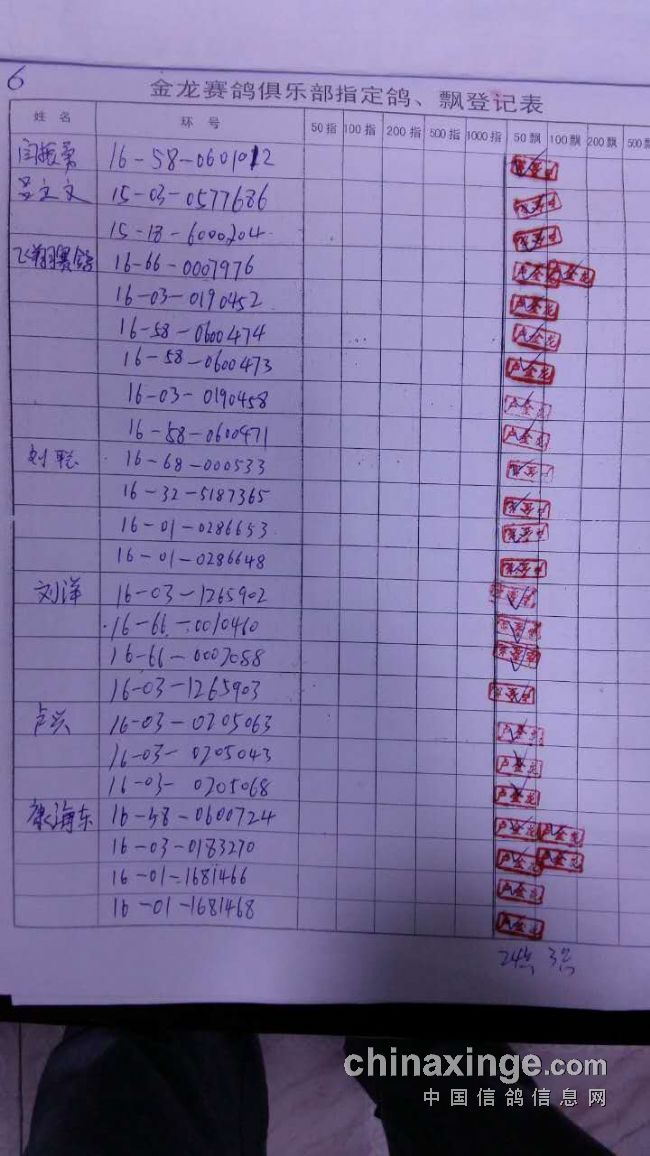 6
金龙赛鸽俱乐部指定鸽、飘登记表
姓 名 环 号 50指 100指 200指 500指 1000指 50飘 100飘 200飘 500
闫振 16-58-0601012
文 15-03-0577686
15-18-6000204
飞翔赛鸽 16-66-0007976 卢金龙 卢金龙
16-03-0190452 卢金龙
16-58-0600474 卢金龙
16-58-0600473 卢金龙
16-03-0190458 卢金龙
16-58-0600471 卢金龙
刘聪 16-68-000533
16-32-5187365
16-01-0286653
16-01-0286648
刘洋 16-03-1265902
16-66-0010460
16-66-0007088
16-03-1265903
卢兴 16-03-0205063 卢金龙
16-03-0205043 卢金龙
16-03-0205068 卢金龙
康海东 16-58-0600724 卢金龙 卢金龙
16-03-0183270 卢金龙 卢金龙
16-01-1681466 卢金龙
16-01-1681468 卢金龙
24 3
chinaxinge.com
中国信鸽信息网